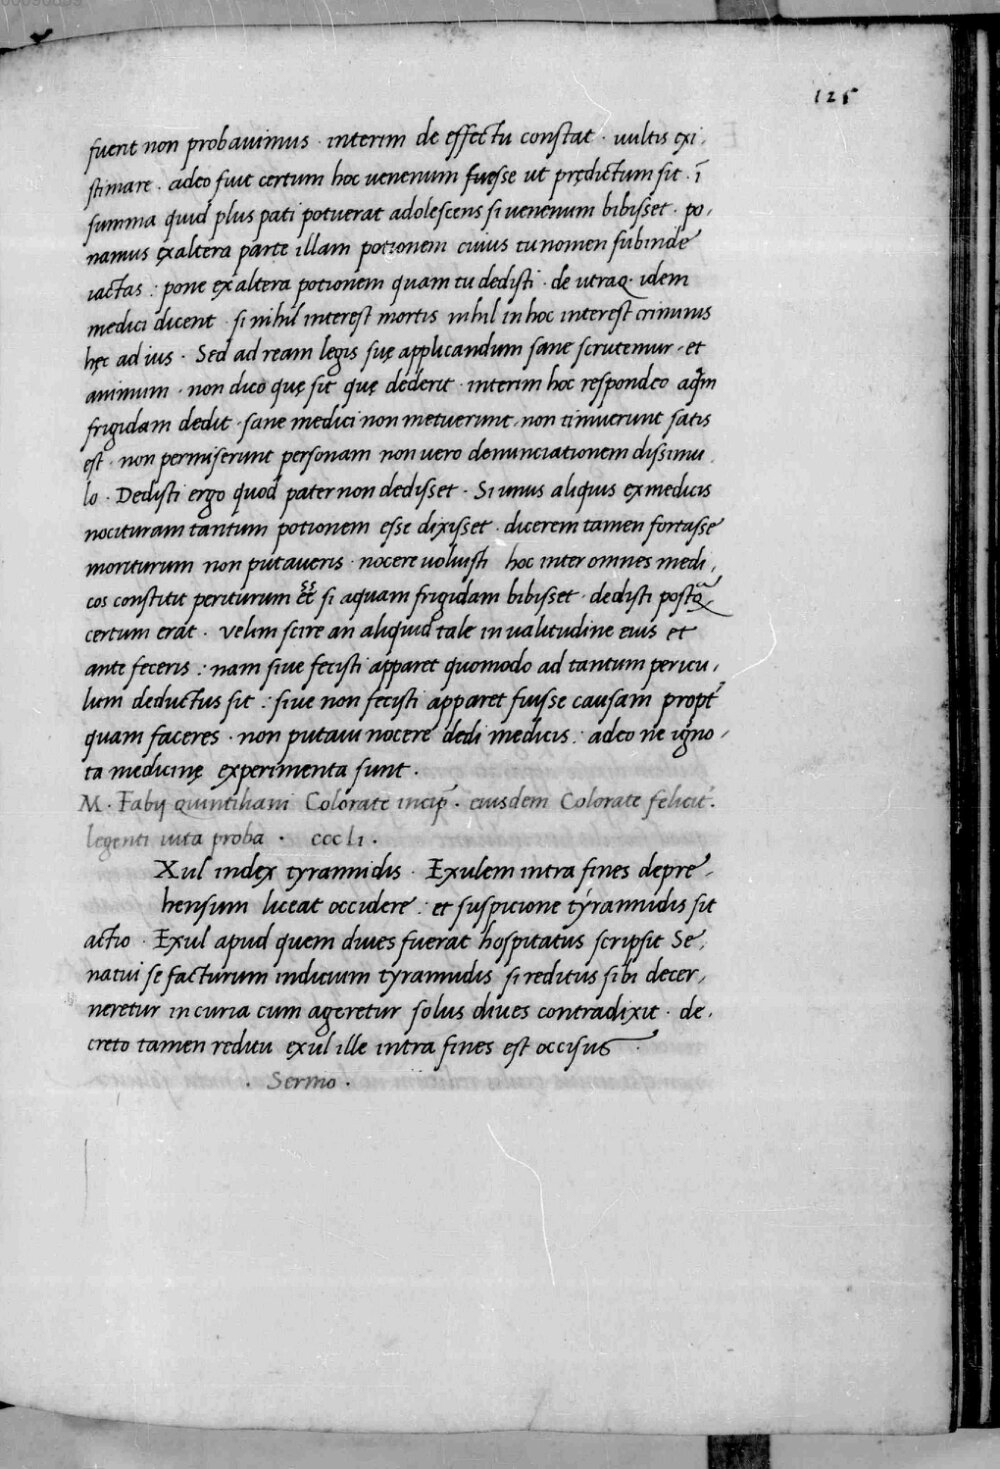 125
fuerit non probauimus · interim de effectu constat · uultis exi,
stimare · adeo fuit certum hoc uenenum fuesse ut prędictum sit · ī
summa quid plus pati potuerat adolescens si uenenum bibisset · po,
namus exaltera parte illam potionem cuius tu nomen subinde
iactas : pone ex altera potionem quam tu dedisti · de utraq· idem
medici dicent · si nihil interest mortis nihil in hoc interest criminis
hęc ad ius · Sed ad ream legis suę applicandum sane scrutemur · et
animum · non dico quę sit quę dederit · interim hoc respondeo aq̄m
frigidam dedit · sane medici non metuerunt · non timuerunt satis
est · non permiserunt personam non uero denunciationem dissimu
lo · Dedisti ergo quod pater non dedisset · Si unus aliquis ex medicis
nocituram tantum potionem esse dixisset · dicerem tamen fortasse
moriturum non putaueris · nocere uoluisti hoc inter omnes medi,
cos constitit periturum et si aquam frigidam bibisset · dedisti postq̄
certum erat · velim scire an aliquid tale in ualitudine eius et
ante feceris : nam siue fecisti apparet quomodo ad tantum pericu,
lum deductus sit : siue non fecisti apparet fuisse causam propt
quam faceres · non putaui nocere dedi medicis : adeo ne igno,
ta medicinę experimenta sunt ·
M · Fabij quintiliani Colorate incip̄ · eiusdem Colorate felicit̄ ·
legenti uita proba · cccLi ·
Xul index tyrannidis · Exulem intra fines depre,
hensum liceat occidere : et suspicione tyrannidis sit
actio · Exul apud quem diues fuerat hospitatus scripsit Se,
natui se facturum indicium tyrannidis si reditus sibi decer,
neretur in curia cum ageretur solus diues contradixit · de,
creto tamen reditu exul ille intra fines est occisus
· Sermo ·